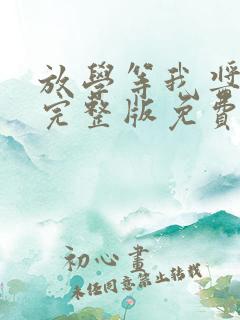 放學等我 將
完整版免費
初心畫
未经同意禁止转载